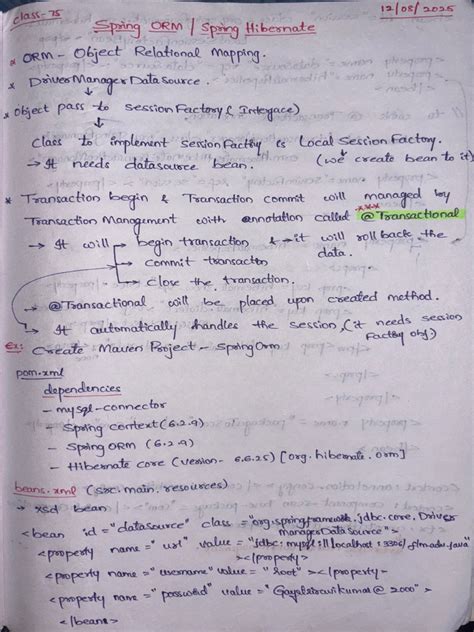 class-75
12/08/2025
Spring ORM / Spring Hibernate
* ORM - Object Relational Mapping.
* DriverManagerDataSource.
* Object pass to SessionFactory (Interface)
class to implement SessionFactory is Local Session Factory.
→ It needs datasource bean. (we create bean to it)
* Transaction begin & Transaction commit will managed by
Transaction Management with annotation called @Transactional
→ It will → begin transaction & → it will rollback the
→ commit transaction data.
→ close the transaction.
→ @Transactional will be placed upon created method.
→ It automatically handles the session (it needs session
Factory obj.)
Ex: Create Maven Project - SpringOrm
pom.xml
dependencies
- mysql-connector
- Spring context (6.2.9)
- Spring ORM (6.2.9)
- Hibernate core (version- 6.6.25) [org.hibernate.orm]
beans.xml (src.main.resources)
→ xsd bean
<bean id="datasource" class="org.springframework.jdbc.core.Driver
managerDataSource">
<property name="url" value="jdbc:mysql://localhost:3306/
></property>
<property name="username" value="root"></property-
<property name="password" value=
</bean>